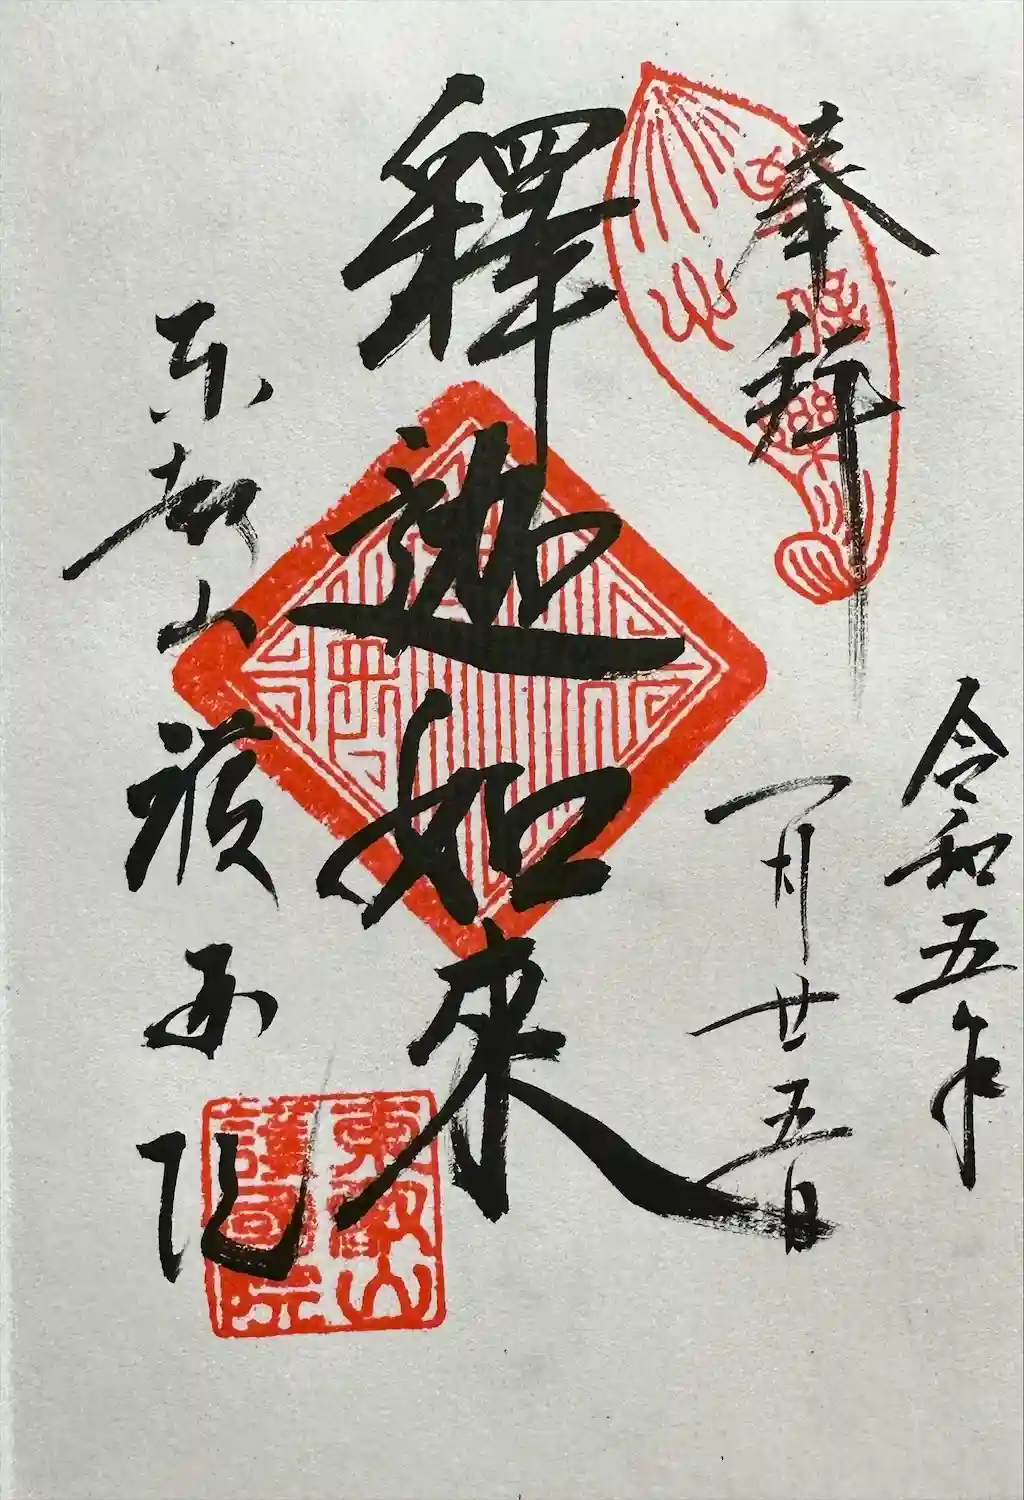 奉拝
令和五年
一月廿五日
釋迦如来
东叡山護国院
東叡山
護國院